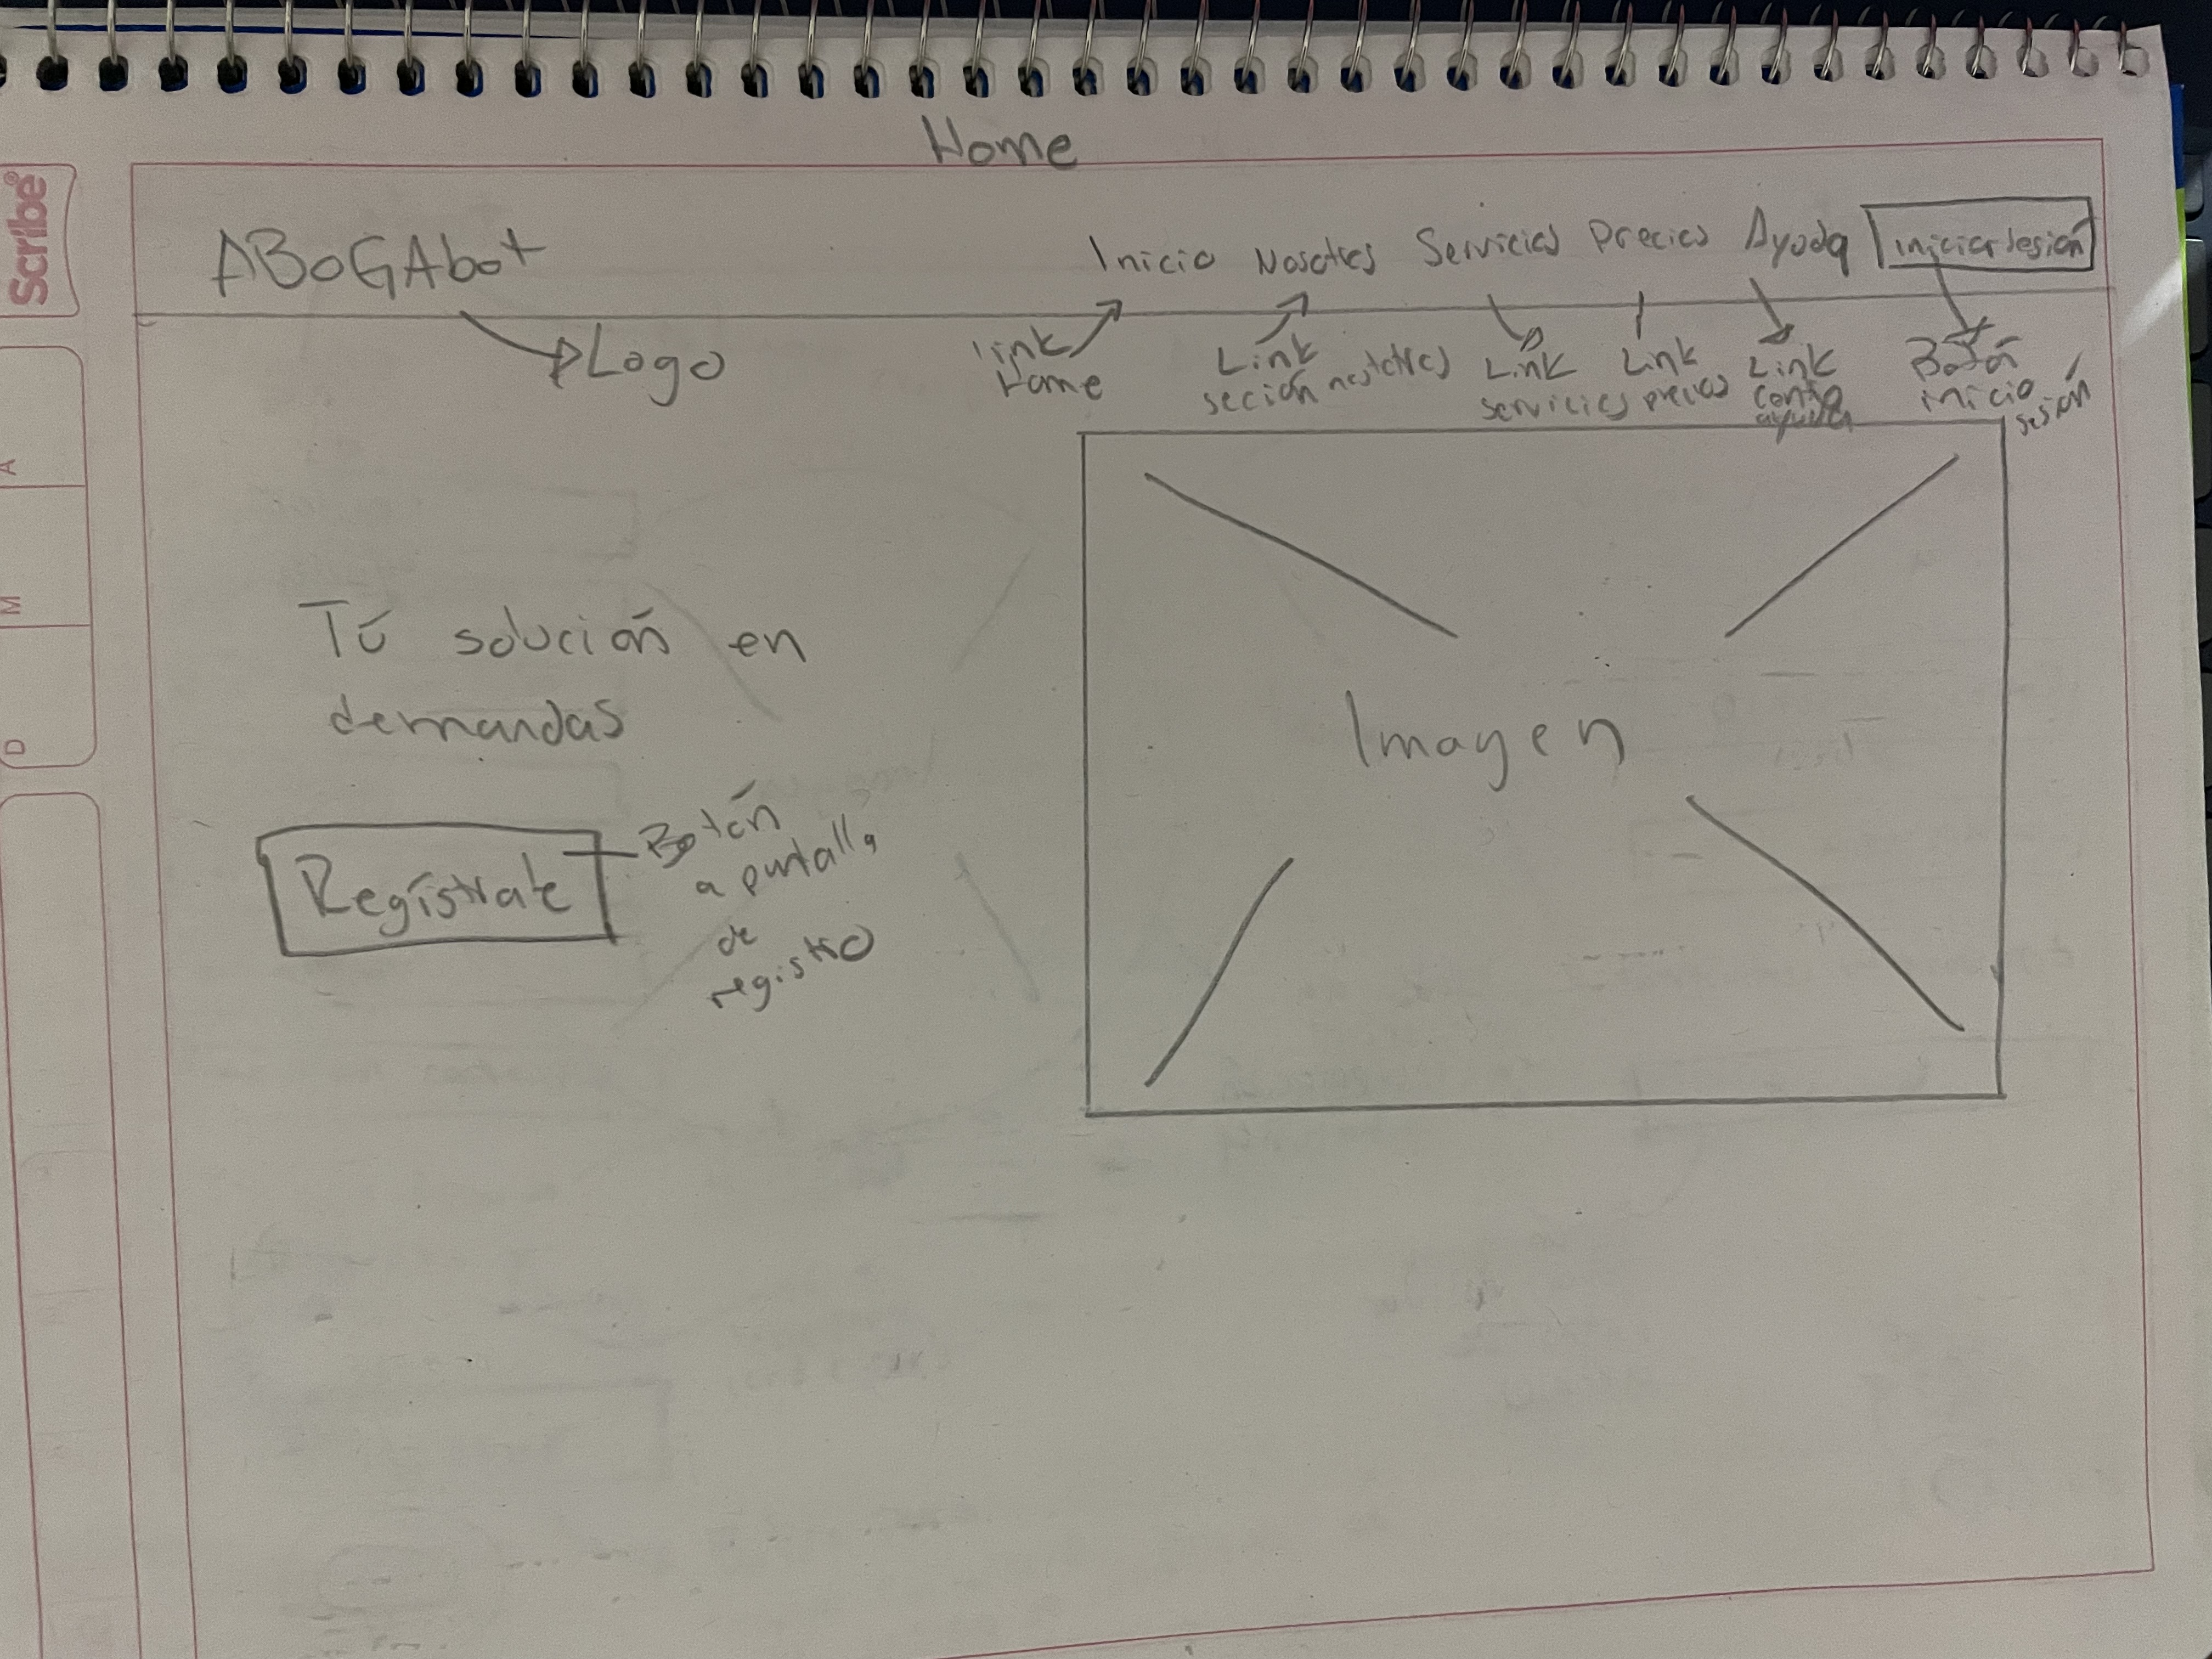 Home
Scribe®
ABOGAbot
Inicio Nosotros Servicios Precios Ayuda Iniciar sesión
Logo
Link
Home
Link
sección nosotros
Link
servicios
Link
precios
Link
ayuda
Botón
inicio
sesión
A
M
D
Tú solución en
demandas
Imagen
Regístrate
Botón
a pantalla
de
registro